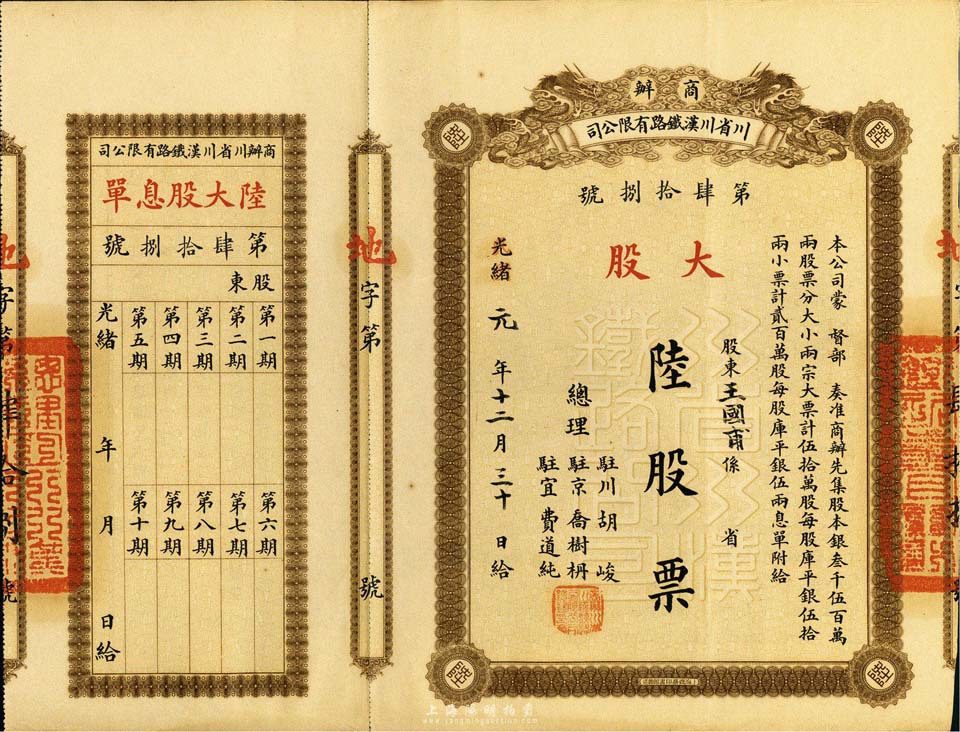 商辦
川省川漢鐵路有限公司
第肆拾捌號
大股
本公司蒙 督部 奏准商辦先集股本銀叁千伍百萬
兩股票分大小兩宗大票計伍拾萬股每股庫平銀伍拾
兩小票計貳百萬股每股庫平銀伍兩息單附給
股東王國甯係 省
陸股票
總理
駐川胡峻
駐京喬樹枏
駐宜費道純
光緒 元 年十二月三十日給
地
字第
號
商辦川省川漢鐵路有限公司
陸大股息單
第肆拾捌號
股東
第一期
第二期
第三期
第四期
第五期
第六期
第七期
第八期
第九期
第十期
光緒 年 月 日給
地
字第肆拾捌號
上海陽明拍賣
www.yangmingauction.com